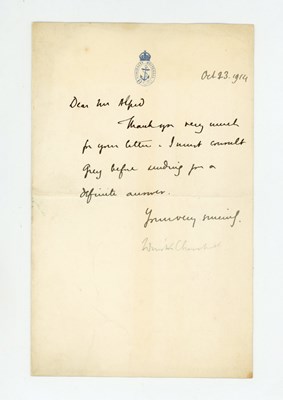 Oct 23. 1914
Dear Mr Alfred
Thank you very much
for your letter. I must consult
Grey before sending you a
definite answer.
Yours very sincerely,
Winston S. Churchill